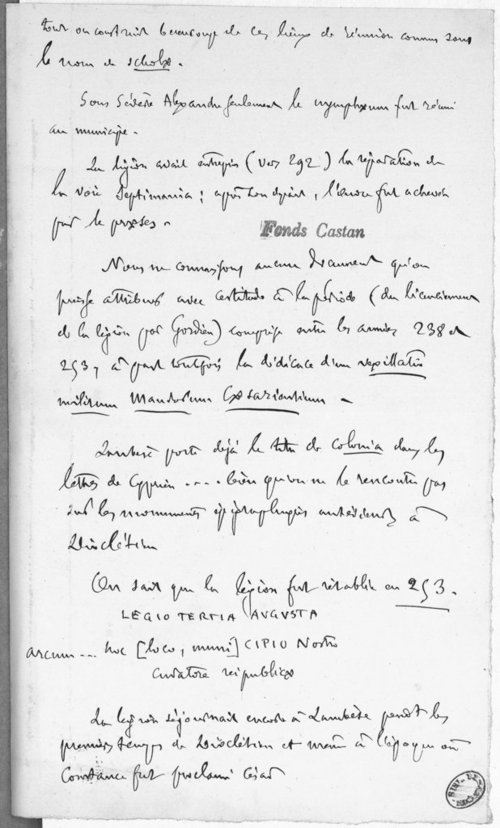 tout on construit beaucoup de ces lieux de réunion connus sous
le nom de scholæ.
Sous Sévère Alexandre seulement le nymphæum fut réuni
au municipe.
La légion avait entrepris (vers 292) la réparation de
la voie Septimiana ; après son départ, l'œuvre fut achevée
par le præses.
Fonds Castan
Nous ne connaissons aucun document qu'on
puisse attribuer avec certitude à la période (du licenciement
de la légion par Gordien) comprise entre les années 238 et
253, à part toutefois la dédicace d'un vexillatio
militum Maurorum Cæsariensium -
Lambèse porte déjà le titre de colonia dans les
lettres de Cyprien .... bien qu'on ne le rencontre pas
sur les monuments épigraphiques antérieurs à
Dioclétien
On sait que la légion fut rétablie en 253.
LEGIO TERTIA AVGVSTA
arcum ... hoc [loco, muni] CIPIU Nostro
curatore reipublicæ
La légion séjournait encore à Lambèse pendt les
premiers temps de Dioclétien et même à l'époque où
Constance fut proclamé César